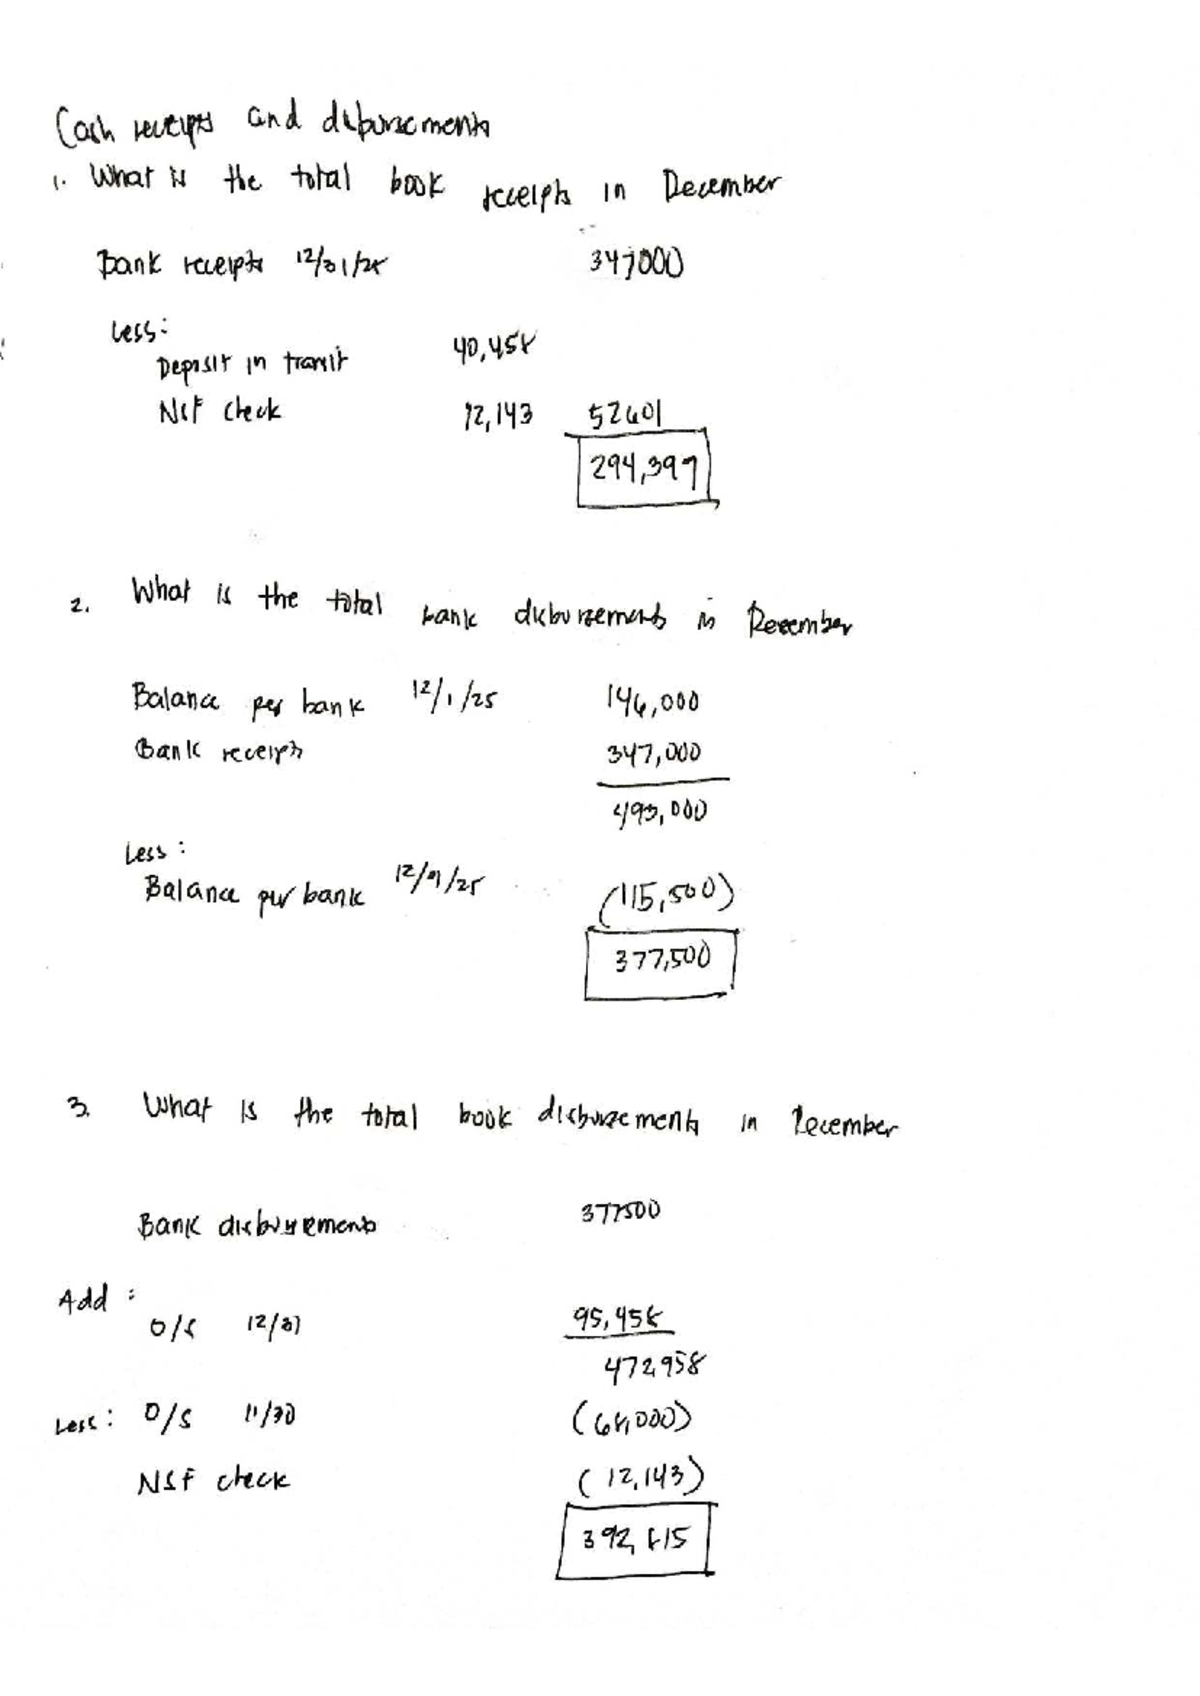 Cash receipts and disbursements
1. What is the total book receipts in December
Bank receipts 12/31/25 347000
Less:
Deposit in transit 40,458
NSF check 12,143 52601
294,399
2. What is the total bank disbursements in December
Balance per bank 12/1/25 146,000
Bank receipts 347,000
493,000
Less:
Balance per bank 12/31/25 (115,500)
377,500
3. What is the total book disbursements in December
Bank disbursements 377500
Add:
O/S 12/31 95,458
472,958
Less: O/S 11/30 (68,000)
NSF check (12,143)
392,815